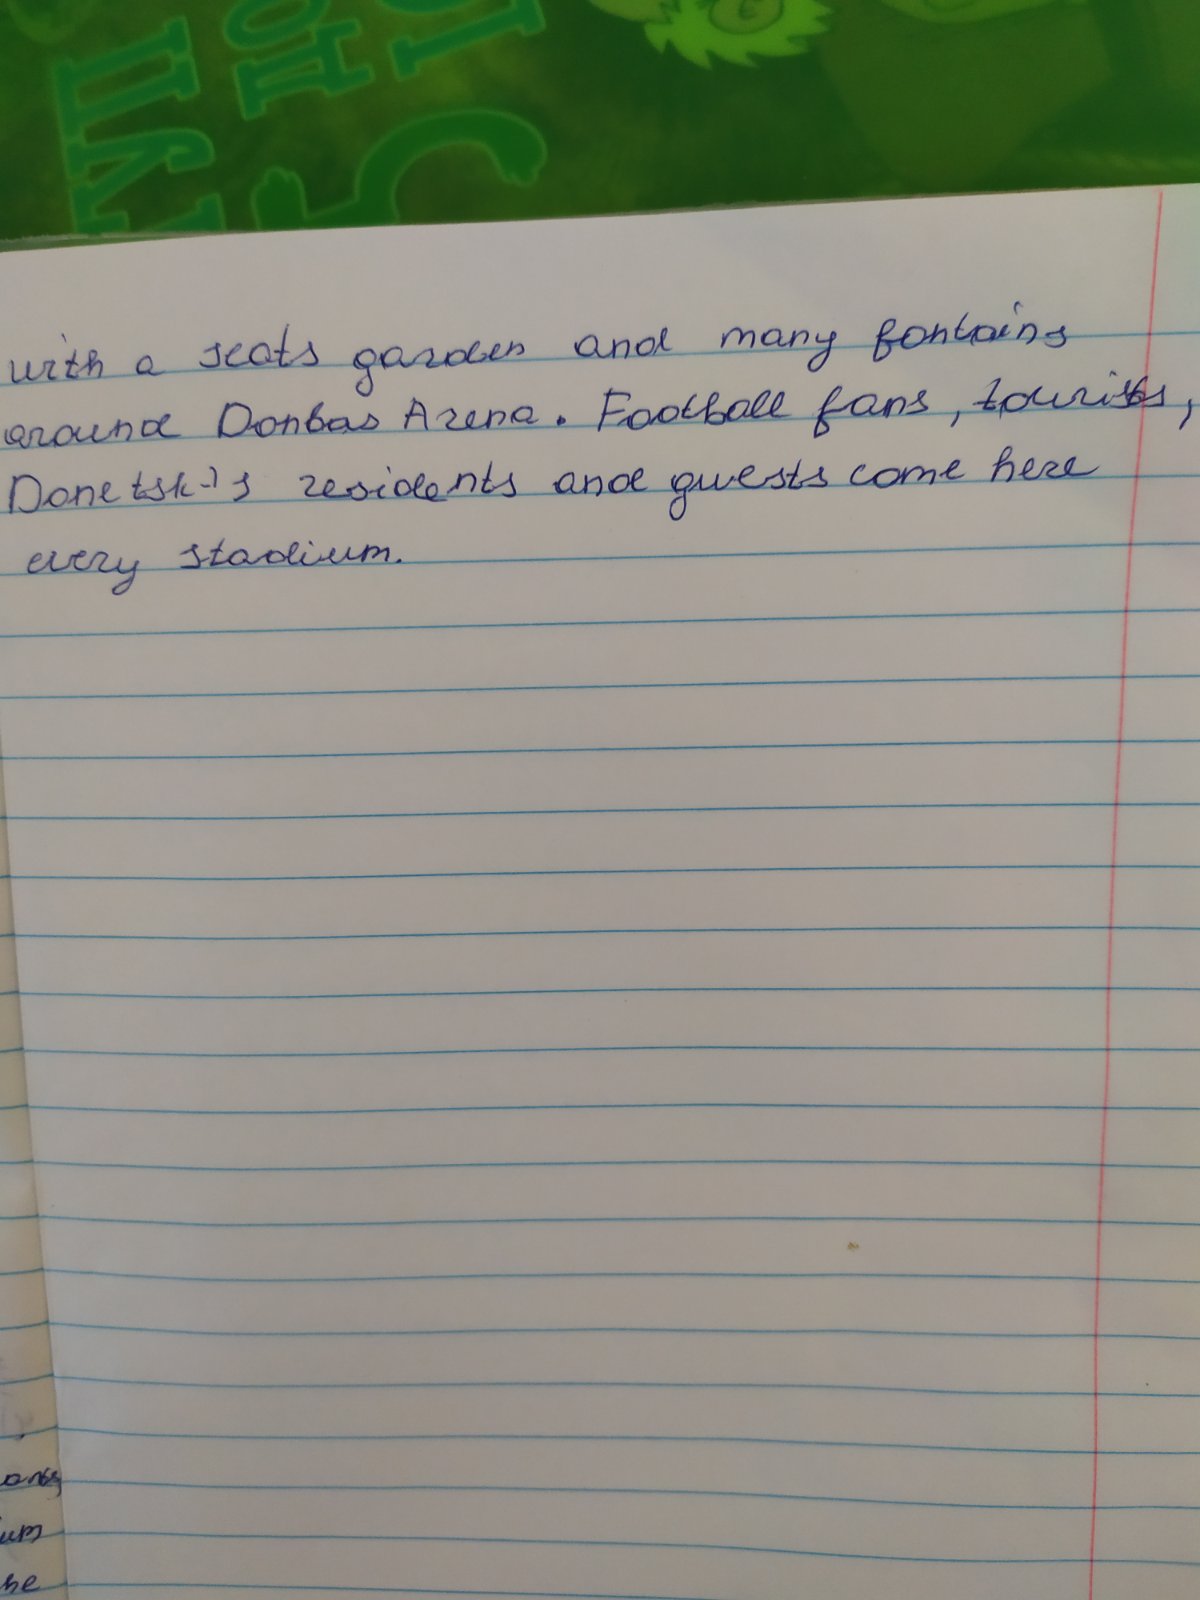 with a seats garden and many fontains
around Donbas Arena. Football fans, tourists,
Donetsk's residents and guests come here
every stadium.